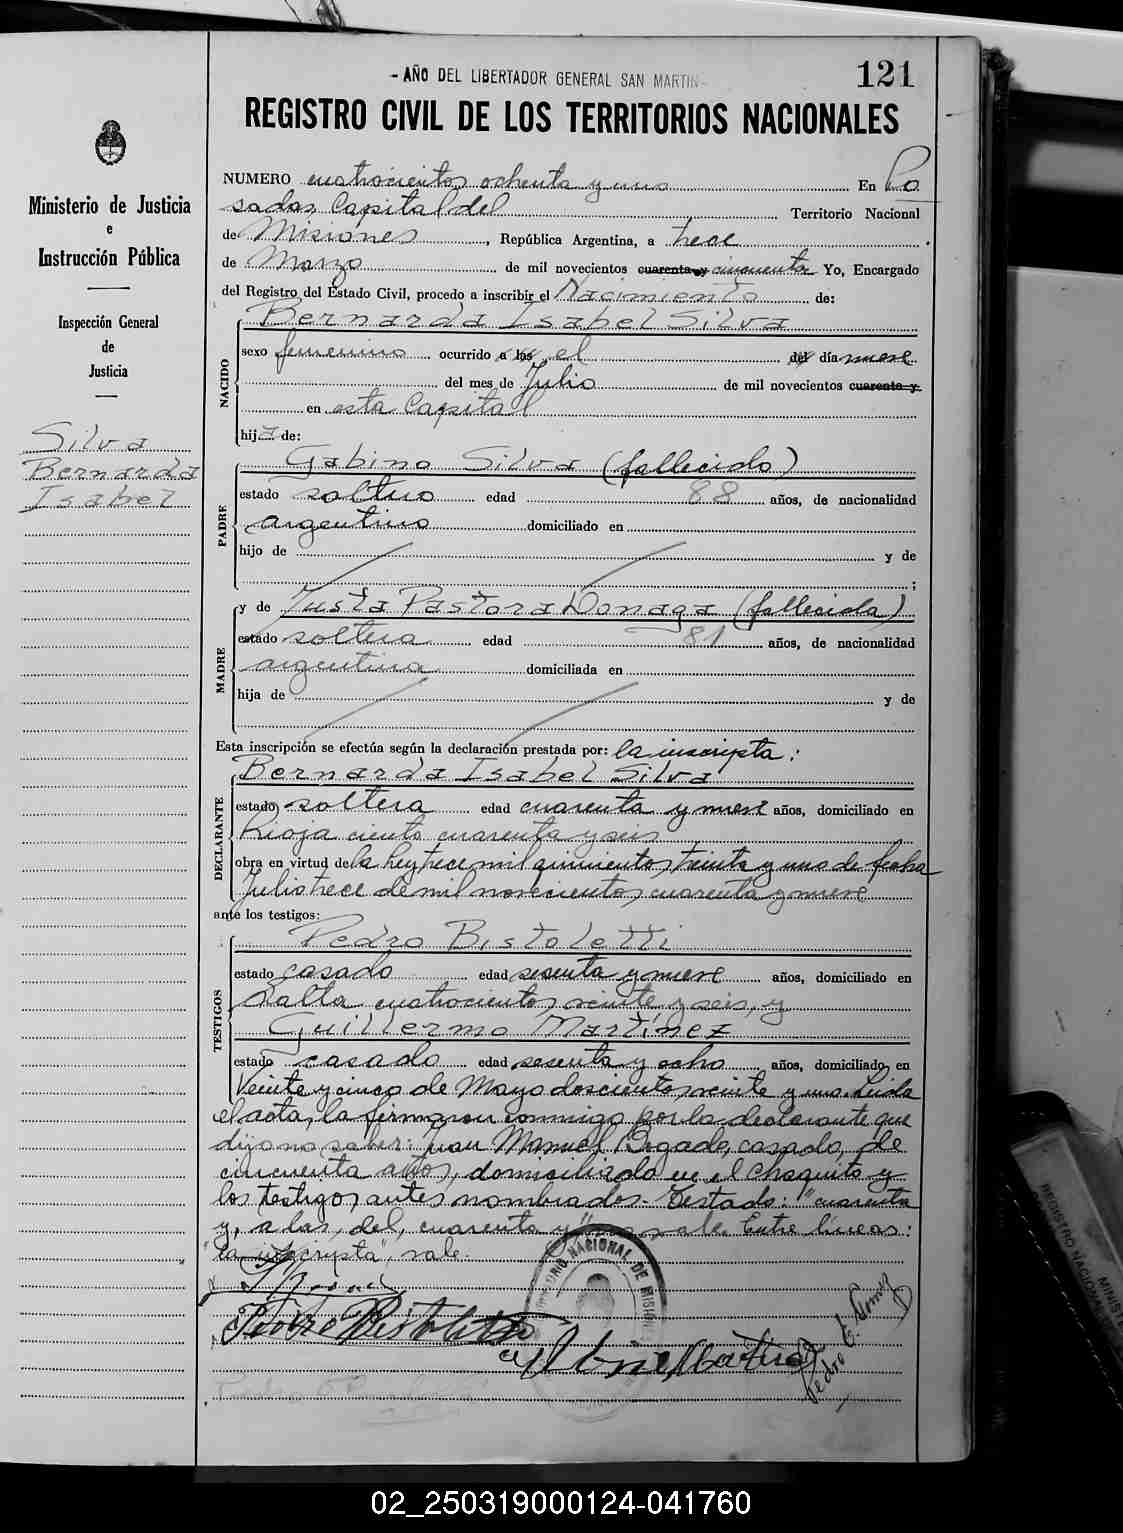 - AÑO DEL LIBERTADOR GENERAL SAN MARTIN -
121
REGISTRO CIVIL DE LOS TERRITORIOS NACIONALES
Ministerio de Justicia
e
Instrucción Pública
Inspección General
de
Justicia
Silva
Bernarda
Isabel
NUMERO cuatrocientos ochenta y uno En Po
sadas, Capital del Territorio Nacional
de Misiones, República Argentina, a trece
de Marzo de mil novecientos cuarenta y cincuenta Yo, Encargado
del Registro del Estado Civil, procedo a inscribir el Nacimiento de:
NACIDO
Bernarda Isabel Silva
sexo femenino ocurrido a las, el del día nueve
del mes de Julio de mil novecientos cuarenta y
en esta Capital
hija de:
PADRE
Gabino Silva (fallecido)
estado soltero edad 88 años, de nacionalidad
argentino domiciliado en
hijo de y de
;
MADRE
y de Justa Pastora Donaga (fallecida)
estado soltera edad 81 años, de nacionalidad
argentina domiciliada en
hija de y de
Esta inscripción se efectúa según la declaración prestada por: la inscripta:
DECLARANTE
Bernarda Isabel Silva
estado soltera edad cuarenta y nueve años, domiciliado en
Rioja ciento cuarenta y seis
obra en virtud de la ley trece mil quinientos treinta y uno de fecha
Julio trece de mil novecientos cuarenta y nueve
ante los testigos:
TESTIGOS
Pedro Bistoletti
estado casado edad sesenta y nueve años, domiciliado en
Salta cuatrocientos veinte y seis, y
Guillermo Martínez
estado casado edad sesenta y ocho años, domiciliado en
Veinte y cinco de Mayo doscientos veinte y uno. Leida
el acta, la firmaron conmigo por la declarante que
dijo no saber: Juan Manuel casado, de
cincuenta años, domiciliado en el Chaquito y
los testigos antes nombrados. Testado: "cuarenta
y, a las, del, cuarenta y" no vale. Entre líneas:
"la inscripta", vale.
Pedro Bistoletti
Pedro E. Gomez
REGISTRO NACIONAL
MINISTE
02_250319000124-041760